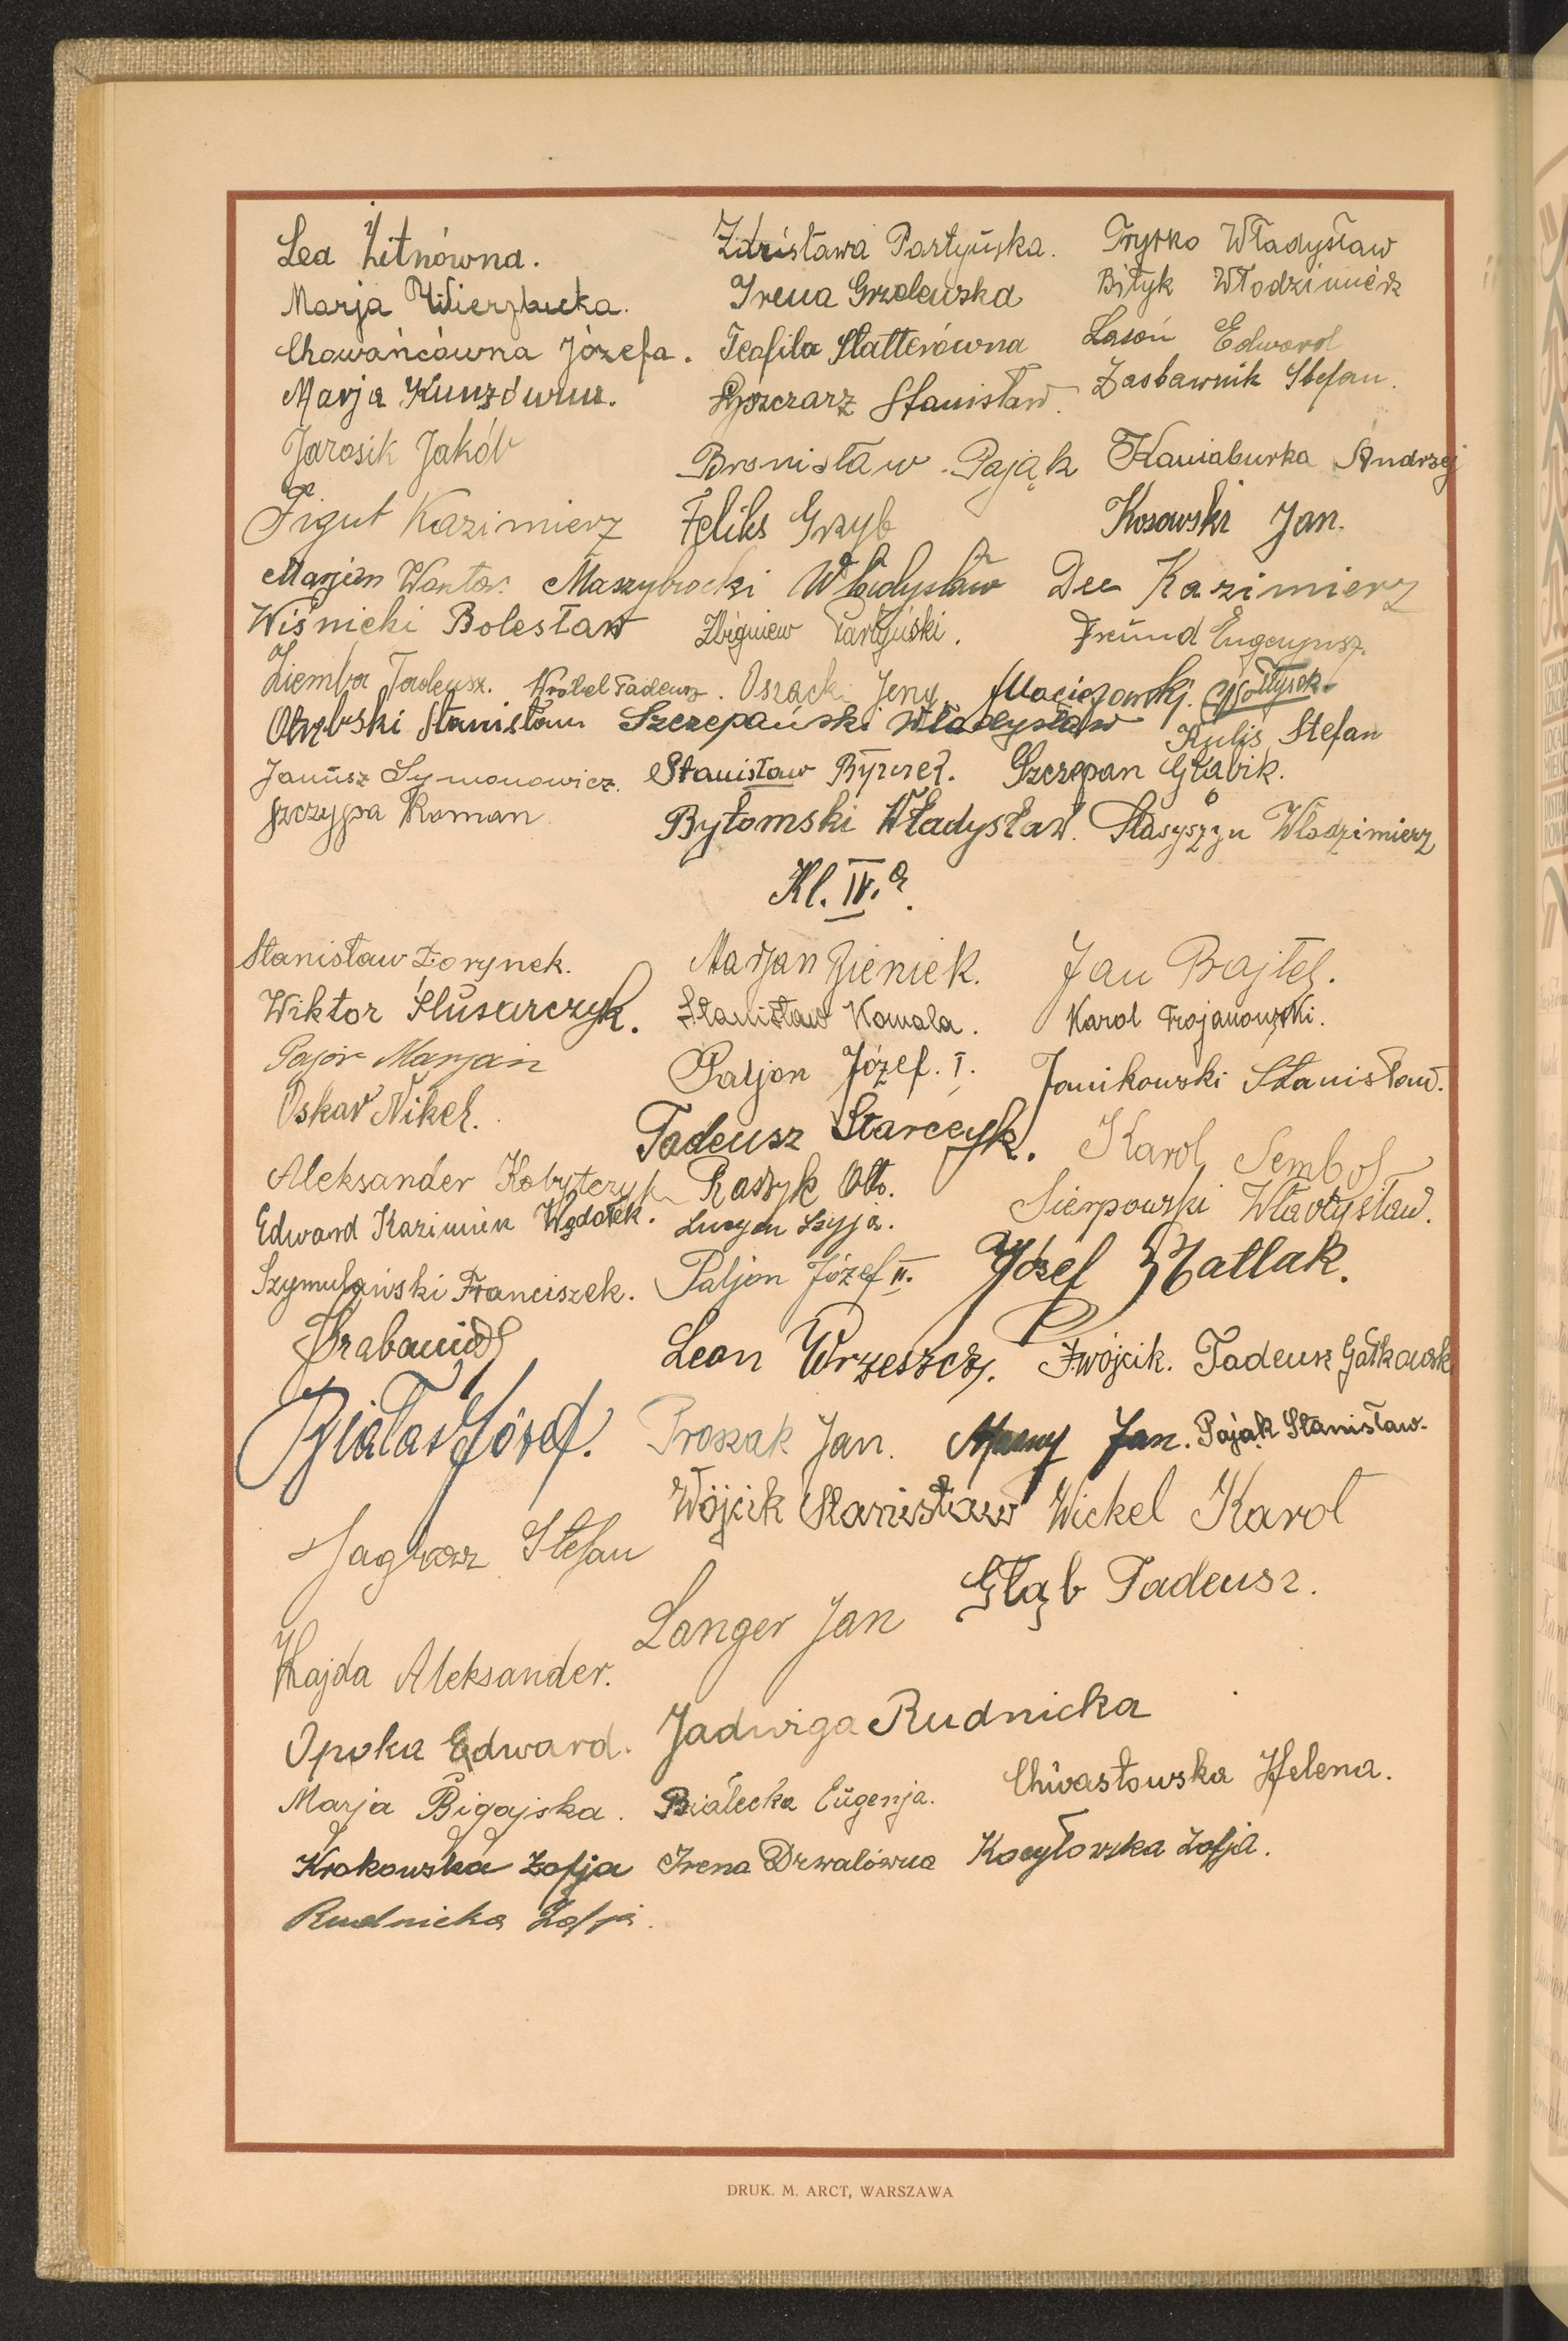 Lea Zitnówna. Zdzisława Partyńska. Trytko Władysław
Marja Wierzbicka. Irena Grzelewska Bityk Włodzimierz
Chowańcówna Józefa. Teofila Statterówna Lasoń Edward
Marja Kunzówna. Stanisław. Zastawnik Stefan.
Jarosik Jakób Bronisław Pająk Andrzej
Figut Kazimierz Feliks Grzyb Kosowski Jan.
Marjan Wantos. Maszybrocki Władysław Dec Kazimierz
Wiśnicki Bolesław Zbigniew Partyński. Freund Eugenjusz.
Ziemba Tadeusz. Wróbel Tadeusz. Oszacki Jerzy
Otrębski Stanisław Szczepański Władysław Kulis Stefan
Janusz Symonowicz. Stanisław Szczepan Głąbik.
Szczypa Roman Bytomski Władysław. Stasyszyn Włodzimierz
Kl. IV. a.
Stanisław Dorynek. Marjan Zieniek. Jan Bajtel.
Wiktor Ślusarczyk. Stanisław Kowala. Karol Trojanowski.
Pajor Marjan Paljon Józef. I. Janikowski Stanisław.
Oskar Nikel. Tadeusz Starczyk. Karol Sembol
Aleksander Kobytczyk Raszyk Otto. Sierpowski Władysław.
Edward Kazimierz Wądołek. Lucyan Szyja.
Szymulawski Franciszek. Paljon Józef II. Józef Matlak.
Leon Wrzeszcz. F. Wójcik. Tadeusz Gałkowski
Białas Józef. Proszak Jan. Jan. Pająk Stanisław.
Wójcik Stanisław Wickel Karol
Stefan
Langer Jan Głąb Tadeusz.
Hajda Aleksander.
Opoka Edward. Jadwiga Rudnicka
Marja Bigajska. Białecka Eugenja. Chwastowska Helena.
Krakowska Zofja Irena Drwalówna Kocyłowska Zofja.
Rudnicka Zofja.
DRUK. M. ARCT, WARSZAWA